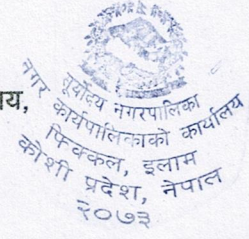 य,
सूर्योदय नगरपालिका
नगर कार्यपालिकाको कार्यालय
फिक्कल, इलाम
कोशी प्रदेश, नेपाल
२०७३